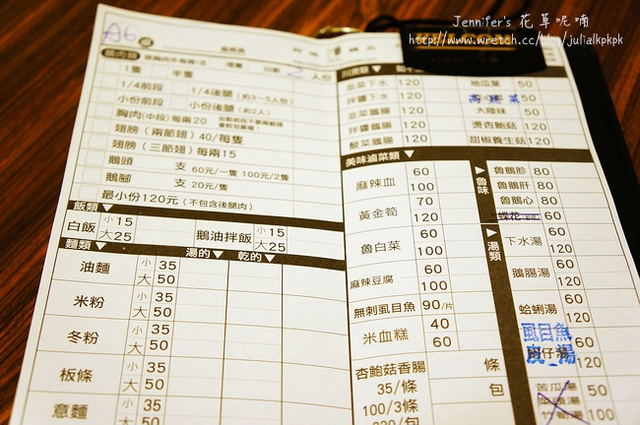 Jennifer's 花草呢喃
http://www.wretch.cc/blog/julialkpkpk
A6
2 人份
1隻 半隻
1/4前段 1/4後腿(約3~5人份)
小份前段 小份後腿(約2人)
胸肉(中段)每兩20
翅膀(兩節翅) 40/每隻
翅膀(三節翅)每兩15
鵝頭 支 60元/一隻 100元/2隻
鵝腳 支 20元/隻
最小份120元(不包含後腿肉)
飯類▼
白飯 小15 大25 鵝油拌飯 小15 大25
麵類▼ 湯的▼ 乾的▼
油麵 小 35 大 50
米粉 小 35 大 50
冬粉 小 35 大 50
板條 小 35 大 50
意麵 小 35 大 50
韭菜下水 120 地瓜葉 50
拌醬下水 120 50
韭菜鵝腸 120 大陸妹 50
拌醬鵝腸 120 燙杏鮑菇 120
酸菜鵝腸 120 甜椒養生菇 120
美味滷菜類▼
麻辣血 60 100
黃金筍 70 120
魯白菜 60 100
麻辣豆腐 60 100
無刺虱目魚 90/片
米血糕 40 60
杏鮑菇香腸 條
35/條 包
100/3條
▶魯味
魯鵝胗 80
魯鵝肝 80
魯鵝心 80
60
▶湯類
下水湯 60 120
鵝腸湯 60 120
蛤蜊湯 60 120
虱目魚 60 120
苦瓜湯 50
100
竹筍湯 50 100